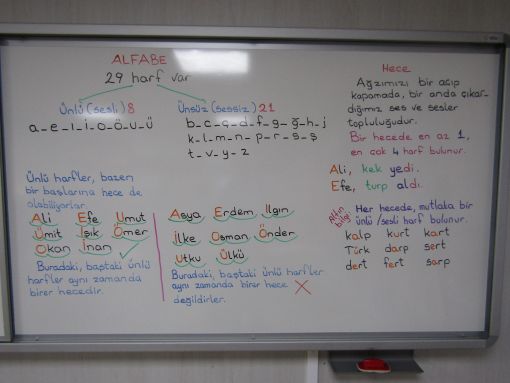 ALFABE
29 harf var
Ünlü (sesli) 8
a-e-ı-i-o-ö-u-ü
Ünsüz (sessiz) 21
b-c-ç-d-f-g-ğ-h-j
k-l-m-n-p-r-s-ş
t-v-y-z
Ünlü harfler, bazen
bir başlarına hece de
olabiliyorlar.
Ali Efe Umut
Ümit Işık Ömer
Okan İnan
Buradaki, baştaki ünlü
harfler aynı zamanda
birer hecedir.
Asya Erdem Ilgın
İlke Osman Önder
Utku Ülkü
Buradaki, baştaki ünlü harfler
aynı zamanda birer hece
değildirler.
Hece
Ağzımızı bir açıp
kapamada, bir anda çıkar-
dığımız ses ve sesler
topluluğudur.
Bir hecede en az 1,
en çok 4 harf bulunur.
Ali, kek yedi.
Efe, turp aldı.
Altın bilgi
Her hecede, mutlaka bir
ünlü /sesli harf bulunur.
kalp kurt kart
Türk darp sert
dert fert sarp